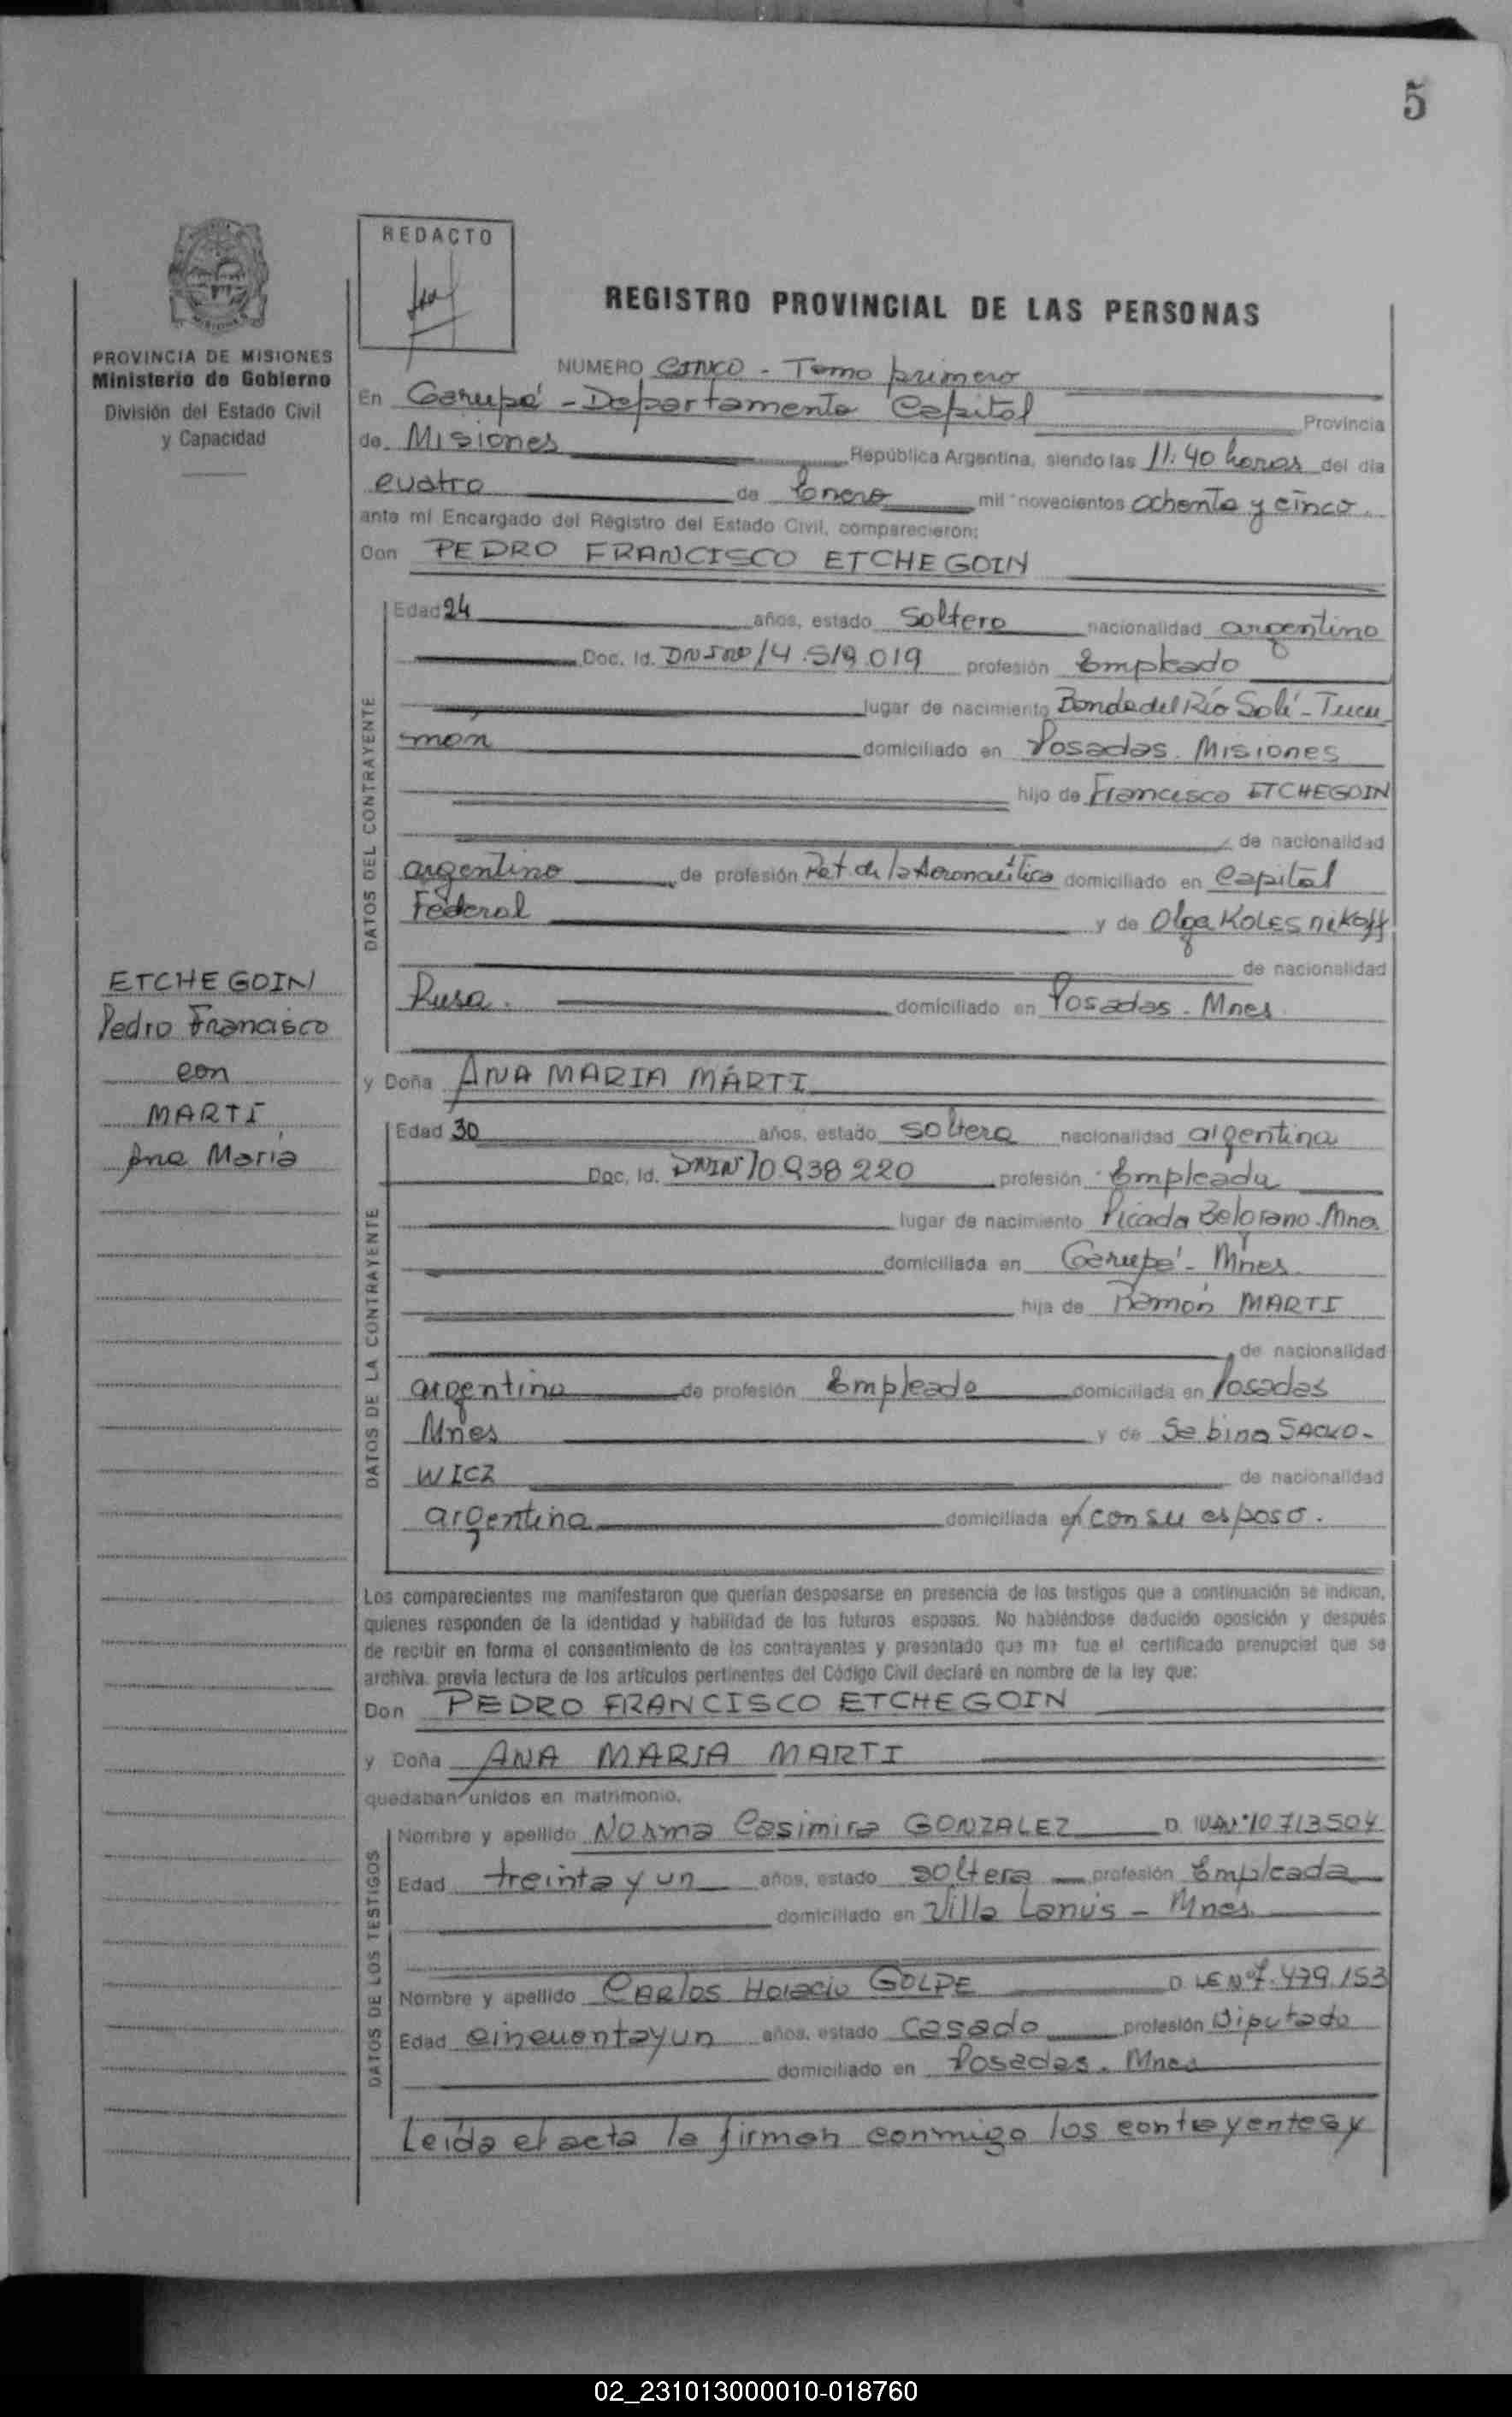 5
REDACTO
PROVINCIA DE MISIONES
Ministerio de Gobierno
División del Estado Civil
y Capacidad
REGISTRO PROVINCIAL DE LAS PERSONAS
NUMERO CINCO - Tomo primero
En Garupá - Departamento Capital Provincia
de Misiones República Argentina, siendo las 11:40 horas del día
cuatro de Enero mil novecientos ochenta y cinco.
ante mí Encargado del Registro del Estado Civil, comparecieron:
Don PEDRO FRANCISCO ETCHEGOIN
DATOS DEL CONTRAYENTE
Edad 24 años, estado Soltero nacionalidad argentino
Doc. Id. DNI Nº 14.519.019 profesión Empleado
lugar de nacimiento Banda del Río Salí - Tucu
man domiciliado en Posadas. Misiones
hijo de Francisco ETCHEGOIN
de nacionalidad
argentino de profesión Ret de la Aeronaútica domiciliado en Capital
Federal y de Olga KOLESnikoff
de nacionalidad
Rusa. domiciliado en Posadas. Mnes
ETCHEGOIN
Pedro Francisco
con
MARTI
Ana Maria
y Doña ANA MARIA MARTI
DATOS DE LA CONTRAYENTE
Edad 30 años, estado soltera nacionalidad argentina
Doc. Id. DNI Nº 10.938.220 profesión Empleada
lugar de nacimiento Picada Belgrano. Mnes
domiciliada en Garupá - Mnes
hija de Ramón MARTI
de nacionalidad
argentino de profesión Empleado domiciliada en Posadas
Mnes y de Sabina SACKO-
WICZ de nacionalidad
argentina domiciliada en con su esposo.
Los comparecientes me manifestaron que querían desposarse en presencia de los testigos que a continuación se indican,
quienes responden de la identidad y habilidad de los futuros esposos. No habiéndose deducido oposición y después
de recibir en forma el consentimiento de los contrayentes y presentado que me fue el certificado prenupcial que se
archiva previa lectura de los artículos pertinentes del Código Civil declaré en nombre de la ley que:
Don PEDRO FRANCISCO ETCHEGOIN
y Doña ANA MARIA MARTI
quedaban unidos en matrimonio.
DATOS DE LOS TESTIGOS
Nombre y apellido Norma Casimira GONZALEZ D. NI Nº 10713504
Edad treinta y un años, estado soltera profesión Empleada
domiciliado en Villa Lanús - Mnes
Nombre y apellido CARLOS Horacio GOLPE D. LE Nº 7.479.153
Edad cincuentayun años, estado casado profesión Diputado
domiciliado en Posadas. Mnes
Leída el acta la firman conmigo los contrayentes y
02_231013000010-018760